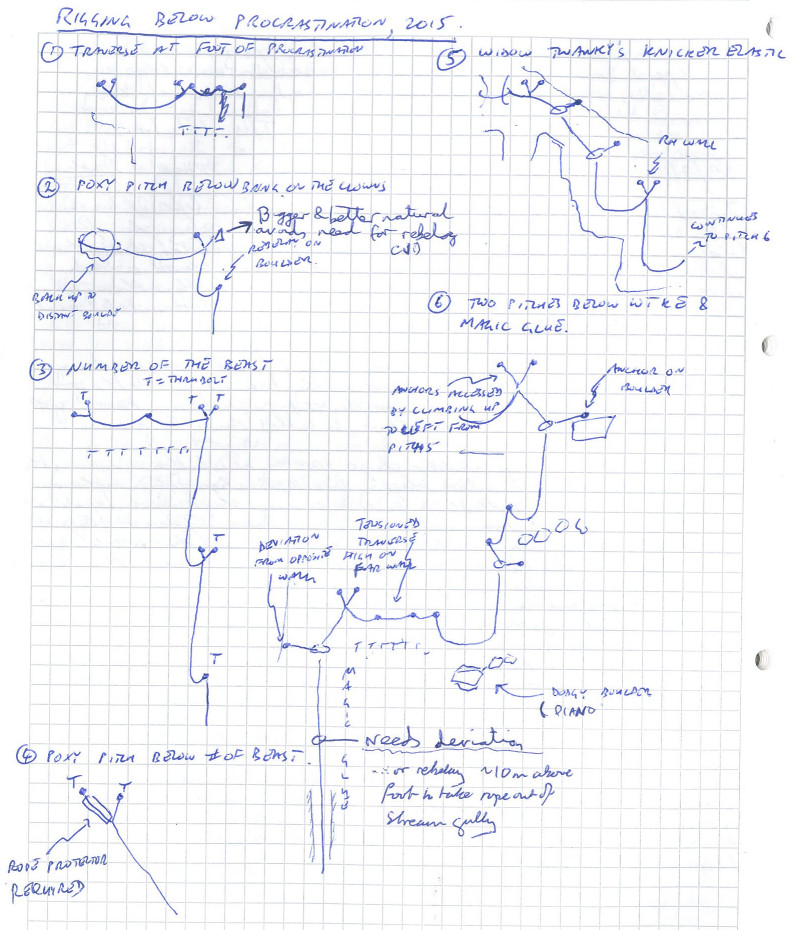 RIGGING BELOW PROCRASTINATION, 2015.
① TRAVERSE AT FOOT OF PROCRASTINATION
T T T T.
② POXY PITCH BELOW BANK ON THE CLOWNS
Bigger & better natural
avoids need for rebelay
REBELAY ON
BOULDER.
BACK UP TO
DISTANT BOULDER
③ NUMBER OF THE BEAST
T = THRUBOLT
T
T T
T T T T T T T.
T
T
④ POXY PITCH BELOW # OF BEAST.
T T
ROPE PROTECTOR
REQUIRED
⑤ WIDOW TWANKY'S KNICKER ELASTIC
RH WALL
CONTINUES
TO PITCH 6
⑥ TWO PITCHES BELOW WTKE &
MAGIC GLUE.
ANCHORS ACCESSED
BY CLIMBING UP
TO LEFT FROM
PITCH 5
ANCHOR ON
BOULDER
TENSIONED
TRAVERSE
HIGH ON
FAR WALL
DEVIATION
FROM OPPOSITE
WALL
T T T T T.
DODGY BOULDER
(PIANO
MAGIC GLUE
Needs deviation
... or rebelay ~10m above
foot to take rope out of
stream gully